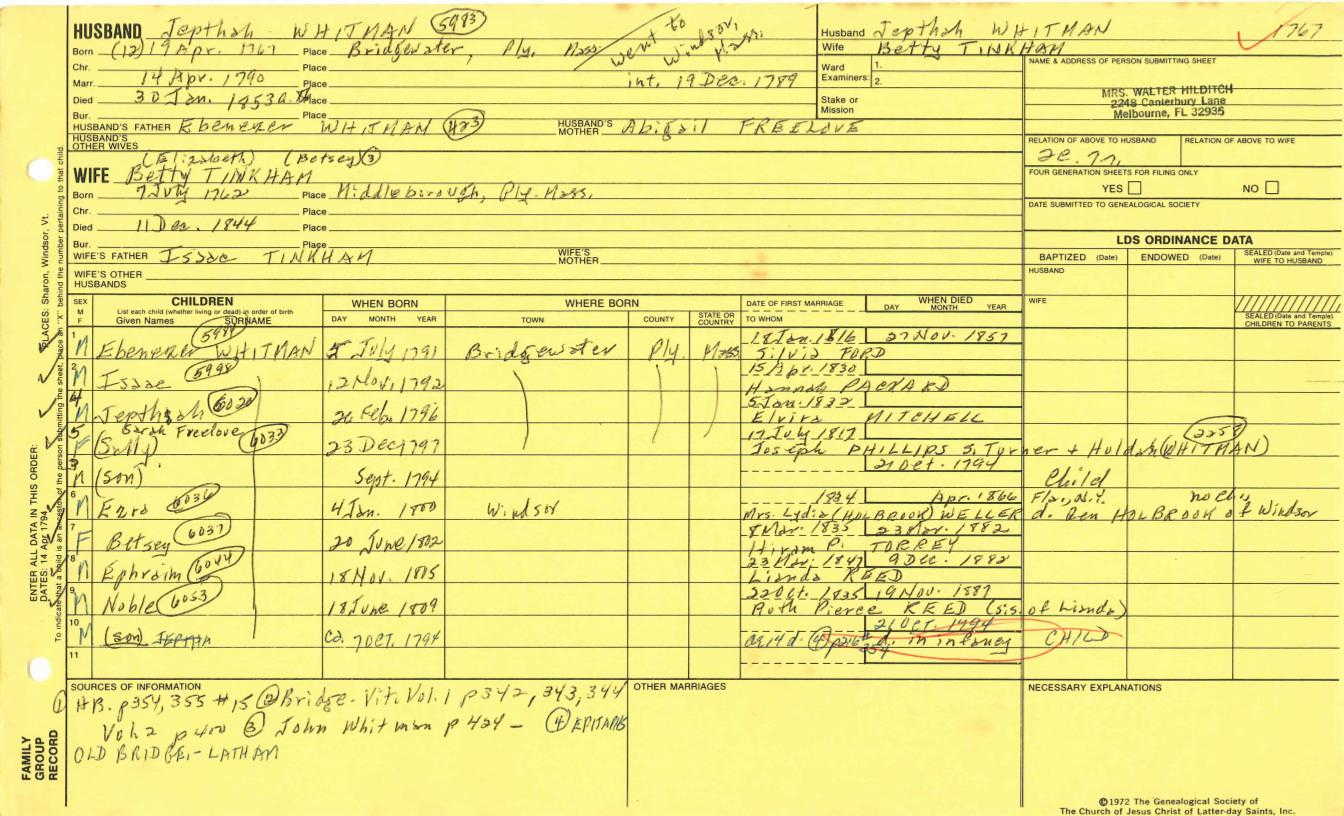 HUSBAND Jepthah WHITMAN 5983
Born (12) 19 Apr. 1767 Place Bridgewater, Ply. Mass
went to Windsor, Mass.
Chr. Place
Marr. 14 Apr. 1790 Place int. 19 Dec. 1789
Died 30 Jan. 1853 Place
Bur. Place
HUSBAND'S FATHER Ebenezer WHITMAN 423 HUSBAND'S MOTHER Abigail FREELOVE
HUSBAND'S OTHER WIVES
(Elizabeth) (Betsey) 3
WIFE Betty TINKHAM
Born 7 July 1762 Place Middleborough, Ply. Mass.
Chr. Place
Died 11 Dec. 1844 Place
Bur. Place
WIFE'S FATHER Isaac TINKHAM WIFE'S MOTHER
WIFE'S OTHER HUSBANDS
Husband Jepthah WHITMAN 1767
Wife Betty TINKHAM
Ward Examiners: 1. 2.
Stake or Mission
NAME & ADDRESS OF PERSON SUBMITTING SHEET
MRS. WALTER HILDITCH
2248 Canterbury Lane
Melbourne, FL 32935
RELATION OF ABOVE TO HUSBAND RELATION OF ABOVE TO WIFE
FOUR GENERATION SHEETS FOR FILING ONLY
YES NO
DATE SUBMITTED TO GENEALOGICAL SOCIETY
LDS ORDINANCE DATA
BAPTIZED (Date) ENDOWED (Date) SEALED (Date and Temple) WIFE TO HUSBAND
HUSBAND
WIFE
SEALED (Date and Temple) CHILDREN TO PARENTS
SEX M F
CHILDREN
List each child (whether living or dead) in order of birth
Given Names SURNAME
WHEN BORN DAY MONTH YEAR
WHERE BORN TOWN COUNTY STATE OR COUNTRY
DATE OF FIRST MARRIAGE TO WHOM
WHEN DIED DAY MONTH YEAR
1 M Ebenezer WHITMAN 5 July 1791 Bridgewater Ply. Mass 18 Jan. 1816 27 Nov. 1857
Silvia FORD
2 M Isaac 5998 12 Nov. 1792 15 Apr. 1830
Hannah PACKARD
4 M Jepthah 6020 26 Feb. 1796 5 Jan. 1832
Elvira MITCHELL
5 F Sarah Freelove (Sally) 6033 23 Dec 1797 17 July 1817
Joseph PHILLIPS S. Turner + Huldah (WHITMAN) 2258
3 M (son) Sept. 1794 21 Oct. 1794 Child
6 M Ezra 6036 4 Jan. 1800 Windsor 1824 Apr. 1866 Fla., N.Y. no ch.
Mrs. Lydia (HOLBROOK) WELLER d. Ben HOLBROOK of Windsor
7 F Betsey 6037 20 June 1802 8 Mar. 1835 23 Mar. 1882
Hiram P. TORREY
8 M Ephraim 6044 18 Nov. 1805 23 Mar. 1847 9 Dec. 1882
Lianda REED
9 M Noble 6053 18 June 1809 22 Oct. 1835 19 Nov. 1887
Ruth Pierce REED (sis. of Lianda)
10 M (son) ca. 7 OCT. 1794 21 Oct. 1794
ae 14 d. 4 p216 d. in infancy CHILD
11
SOURCES OF INFORMATION
1 HB. p354, 355 #15 2 Bridge. Vit. Vol. 1 p342, 343, 344
Vol. 2 p400 3 John Whitman p 424 - 4 EPITAPHS
OLD BRIDGE. - LATHAM
OTHER MARRIAGES
NECESSARY EXPLANATIONS
FAMILY GROUP RECORD
ENTER ALL DATA IN THIS ORDER:
DATES: 14 Apr 1794
PLACES: Sharon, Windsor, Vt.
To indicate that a child is an ancestor of the person submitting the sheet, place an "X" behind the number pertaining to that child.
©1972 The Genealogical Society of
The Church of Jesus Christ of Latter-day Saints, Inc.